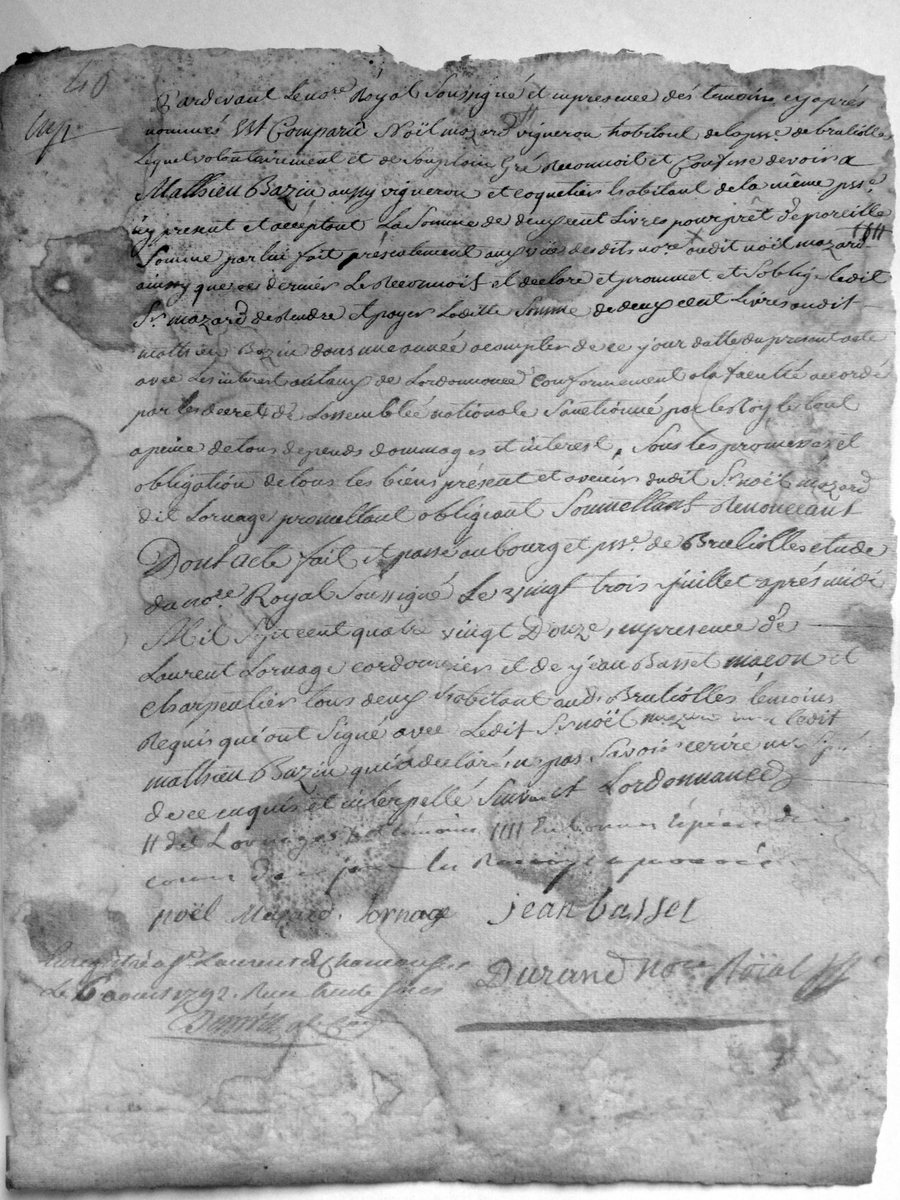 40
exp.
Pardevant le nore Royal Soussigné et en presence des temoins cy après
nommés Est Comparu Noël mazard // vigneron habitant de la psse de brulliolle
Lequel volontairement et de Son plein Gré Reconnoit et Confesse devoir a
Mathieu Bazin aussy vigneron et coquetier habitant de la même psse
icy present et acceptant La Somme de deux cent Livres pour prêt de pareille
Somme par lui fait présentement aux vue desdits nore X audit nöel mazard ////
ainssy que ce dernier Le Reconnoit et declare et prommet et S'oblige Ledit
Sr mazard de Rendre et payer Laditte Somme de deux cent Livres audit
mathieu Bazin dans une année a compter de ce jour datte du present acte
avec Les interest au taux de Lordonnance Conformement a la faculté accordé
par les decrets de Lassemblée nationale Sanctionné par le Roy le tout
a peine de tous depends dommages et interest, Sous les promesses et
obligation de tous les biens présent et avenir dudit Sr noël mazard
dit Lornage promettant obligeant Soumettant Renonceant
Dont acte fait et passé au bourg et psse de Brulliolles etude
du nore Royal Soussigné Le vingt trois juillet aprés midi
Mil Sept cent quatre vingt Douze, en presence de
Laurent Lornage cordonnier et de jean Basset macon et
charpentier tous deux habitant aud. Brulliolles témoins
Requis qui ont Signé avec Ledit Sr noël mazard Ledit
mathieu Bazin qui a declaré ne pas Savoir ecrire ni Signé
de ce enquis et interpellé Suivant Lordonnance
// dit Lornage X et témoins //// En bonnes Espèces de
cours de
noël Mazard. lornage jean basset
Enregistré a St Laurent de Chamousset
Le 6 aout 1792. Reçu trente sous
Durand nore Roïal